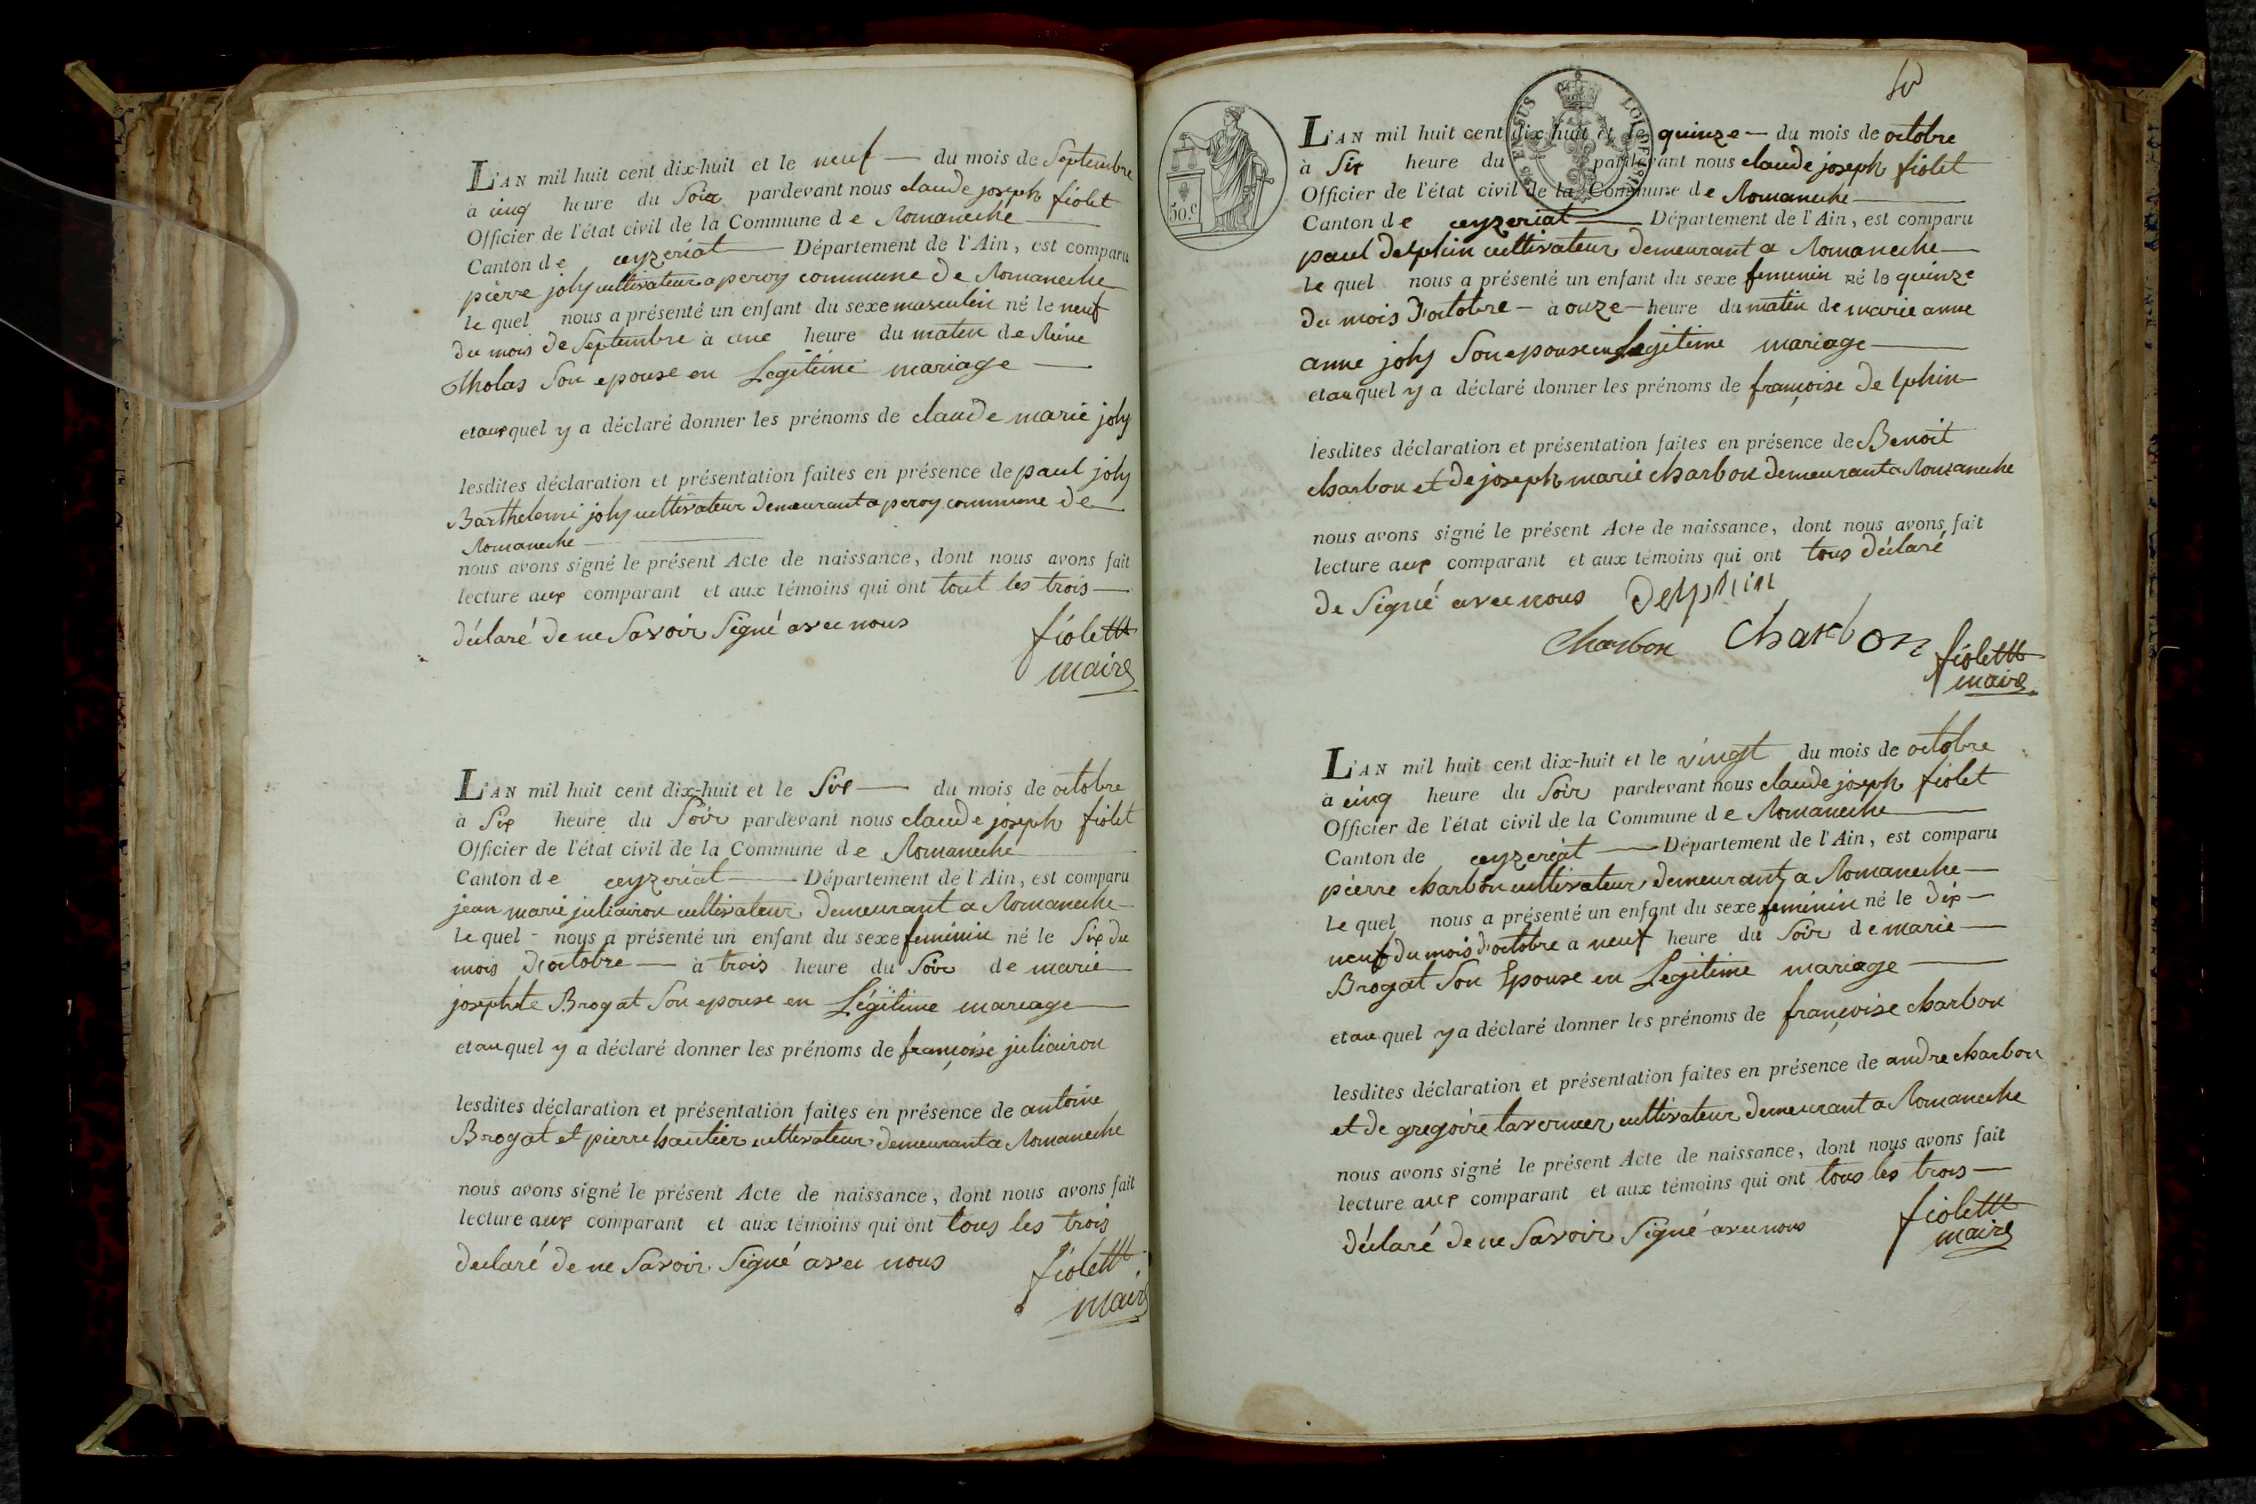 L'AN mil huit cent dix-huit et le neuf — du mois de Septembre
à cinq heure du Soir pardevant nous claude joseph fiolet
Officier de l'état civil de la Commune de Romaneche
Canton de ceyzeriat — Département de l'Ain, est comparu
pierre joly cultivateur a peroy commune de Romaneche
le quel nous a présenté un enfant du sexe masculin né le neuf
du mois de Septembre à une heure du matin de Reine
tholas Son epouse en Legitime mariage —
et auxquel y a déclaré donner les prénoms de claude marie joly
lesdites déclaration et présentation faites en présence de paul joly
Barthelemi joly cultivateur demeurant a peroy commune de
Romaneche
nous avons signé le présent Acte de naissance, dont nous avons fait
lecture aux comparant et aux témoins qui ont tout les trois —
déclaré de ne Savoir Signé avec nous
fiolet
maire
L'AN mil huit cent dix-huit et le Six — du mois de octobre
à Six heure du Soir pardevant nous claude joseph fiolet
Officier de l'état civil de la Commune de Romaneche
Canton de ceyzeriat — Département de l'Ain, est comparu
jean marie juliairon cultivateur demeurant a Romaneche
le quel - nous a présenté un enfant du sexe feminin né le Six du
mois d'octobre — à trois heure du Soir de marie
josephte Brogat Son epouse en Légitime mariage
et au quel y a déclaré donner les prénoms de françoise juliairon
lesdites déclaration et présentation faites en présence de antoine
Brogat et pierre hautier cultivateur demeurant a Romaneche
nous avons signé le présent Acte de naissance, dont nous avons fait
lecture aux comparant et aux témoins qui ont tous les trois
declaré de ne Savoir Signé avec nous
fiolet
maire
50.c
L'AN mil huit cent dix-huit et le quinze — du mois de octobre
à Six heure du pardevant nous claude joseph fiolet
Officier de l'état civil de la Commune de Romaneche
Canton de ceyzeriat — Département de l'Ain, est comparu
paul delphin cultivateur demeurant a Romaneche
le quel nous a présenté un enfant du sexe feminin né le quinze
du mois d'octobre — à onze — heure du matin de marie anne
anne joly Son epouse en Legitime mariage
et au quel y a déclaré donner les prénoms de françoise delphin
lesdites déclaration et présentation faites en présence de Benoit
charbon et de joseph marie charbon demeurant a Romaneche
nous avons signé le présent Acte de naissance, dont nous avons fait
lecture aux comparant et aux témoins qui ont tous déclaré
de Signé avec nous delphin
charbon charbon fiolet
maire
L'AN mil huit cent dix-huit et le vingt du mois de octobre
à cinq heure du Soir pardevant nous claude joseph fiolet
Officier de l'état civil de la Commune de Romaneche
Canton de ceyzeriat — Département de l'Ain, est comparu
pierre charbon cultivateur demeurant a Romaneche —
le quel nous a présenté un enfant du sexe feminin né le dix —
neuf du mois d'octobre a neuf heure du Soir de marie —
Brogat Son Epouse en Legitime mariage —
et au quel y a déclaré donner les prénoms de françoise charbon
lesdites déclaration et présentation faites en présence de andre charbon
et de gregoire tavernier cultivateur demeurant a Romaneche
nous avons signé le présent Acte de naissance, dont nous avons fait
lecture aux comparant et aux témoins qui ont tous les trois —
déclaré de ne Savoir Signé avec nous
fiolet
maire